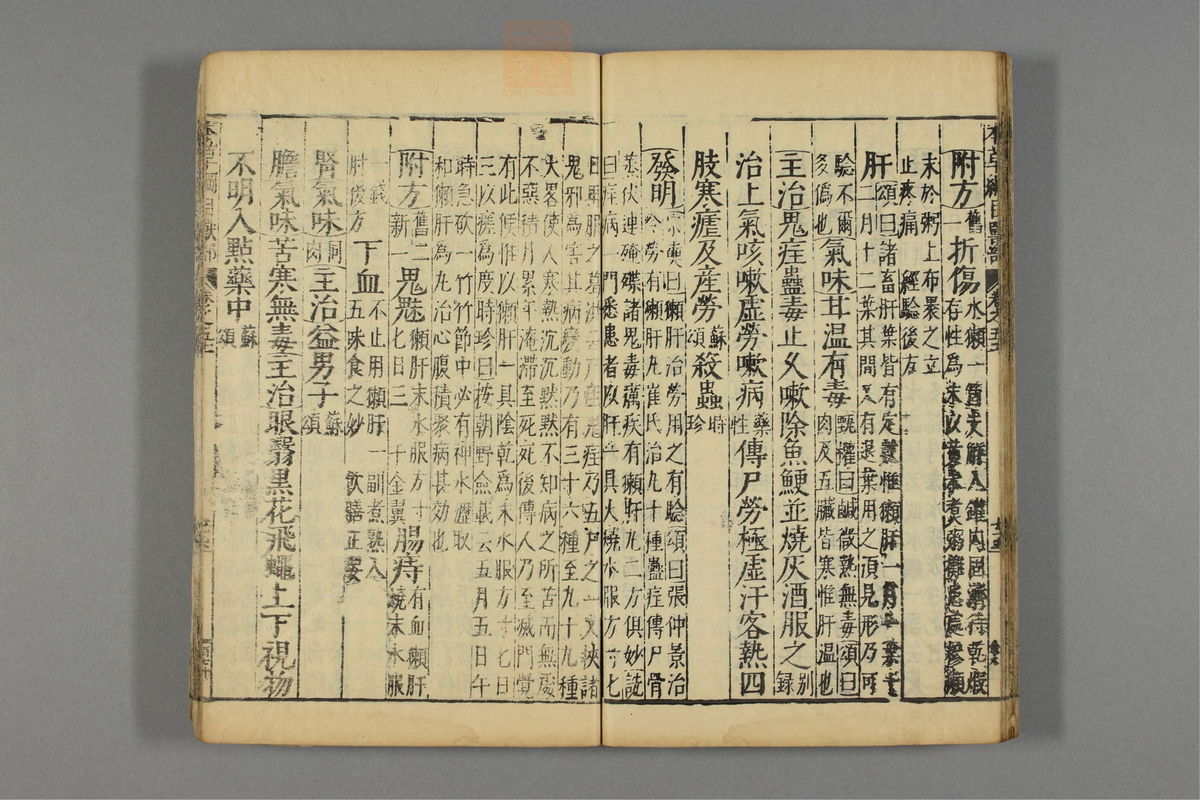 附方舊一折傷水獺一箇支解入罐內固濟待乾煅
存性為末以黃米煮粥攤患處糝獺
末於粥上布裹之立
止疼痛 經驗後方
肝頌曰諸畜肝葉皆有定數惟獺肝一月一葉十
二月十二葉其間又有退葉用之須見形乃可
驗不爾
多偽也氣味甘温有毒甄權曰鹹微熱無毒頌曰
肉及五臟皆寒惟肝温也
主治鬼疰蠱毒止久嗽除魚鯁並燒灰酒服之别錄
治上氣咳嗽虛勞嗽病藥性傳尸勞極虛汗客熱四
肢寒瘧及産勞蘇頌殺蟲時珍
發明宗奭曰獺肝治勞用之有驗頌曰張仲景治
冷勞有獺肝丸崔氏治九十種蠱疰傳尸骨
蒸伏連殗殜諸鬼毒癘疾有獺肝丸二方俱妙詵
曰疰病一門悉患者以肝一具火燒水服方寸七
日再服之葛洪云尸疰鬼疰乃五尸之一又挾諸
鬼邪為害其病變動乃有三十六種至九十九種
大畧使人寒熱沉沉默默不知病之所苦而無處
不惡積月累年淹滯至死死後傳人乃至滅門覺
有此候惟以獺肝一具陰乾為末水服方寸七日
三以瘥為度時珍曰按朝野僉載云五月五日午
時急砍一竹竹節中必有神水瀝取
和獺肝為丸治心腹積聚病甚効也
附方舊二新一鬼魅獺肝末水服方寸
七日三 千金翼腸痔有血獺肝
燒末水服
一錢
肘後方下血不止用獺肝一副煮熟入
五味食之妙 飲膳正要
腎氣味同肉主治益男子蘇頌
膽氣味苦寒無毒主治眼翳黑花飛蠅上下視物
不明入點藥中蘇頌